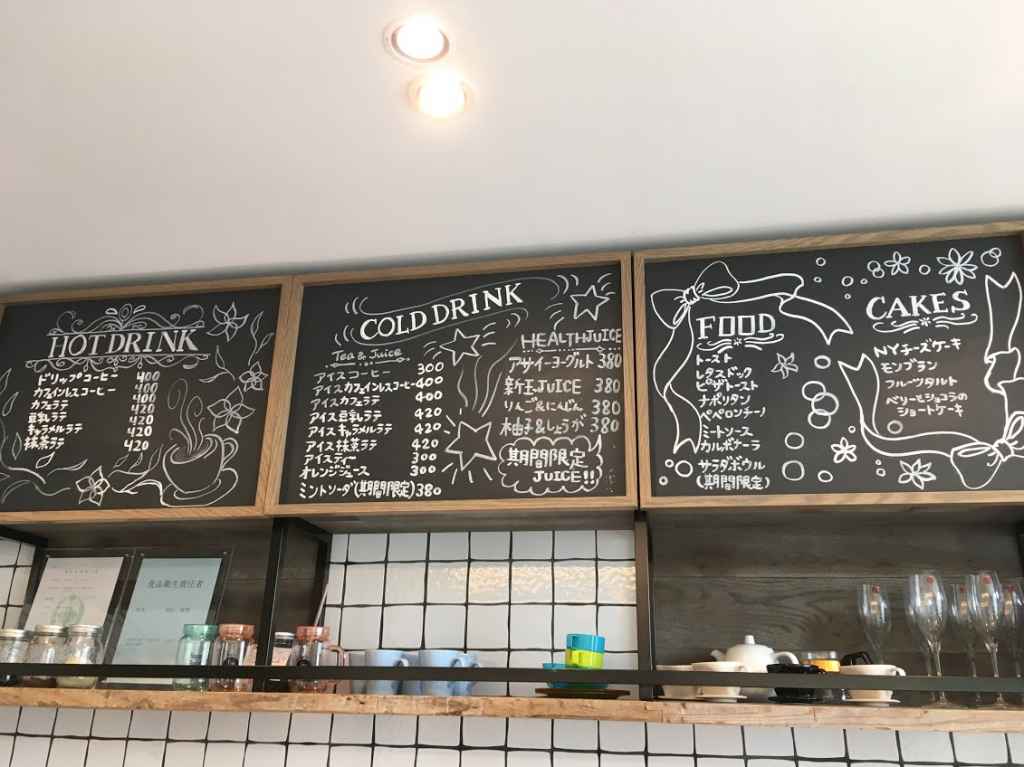 HOT DRINK
ドリップコーヒー 400
カフェインレスコーヒー 400
カフェラテ 400
豆乳ラテ 420
キャラメルラテ 420
抹茶ラテ 420
COLD DRINK
Tea & Juice
アイスコーヒー 300
アイスカフェインレスコーヒー 400
アイスカフェラテ 400
アイス豆乳ラテ 420
アイスキャラメルラテ 420
アイス抹茶ラテ 420
アイスティー 300
オレンジジュース 300
ミントソーダ(期間限定) 380
HEALTH JUICE
アサイーヨーグルト 380
新玉JUICE 380
りんご&にんじん 380
柚子&しょうが 380
期間限定
JUICE!!
FOOD
トースト
レタスドック
ピザトースト
ナポリタン
ペペロンチーノ
ミートソース
カルボナーラ
サラダボウル
(期間限定)
CAKES
NYチーズケーキ
モンブラン
フルーツタルト
ベリーとショコラの
ショートケーキ
食品衛生責任者